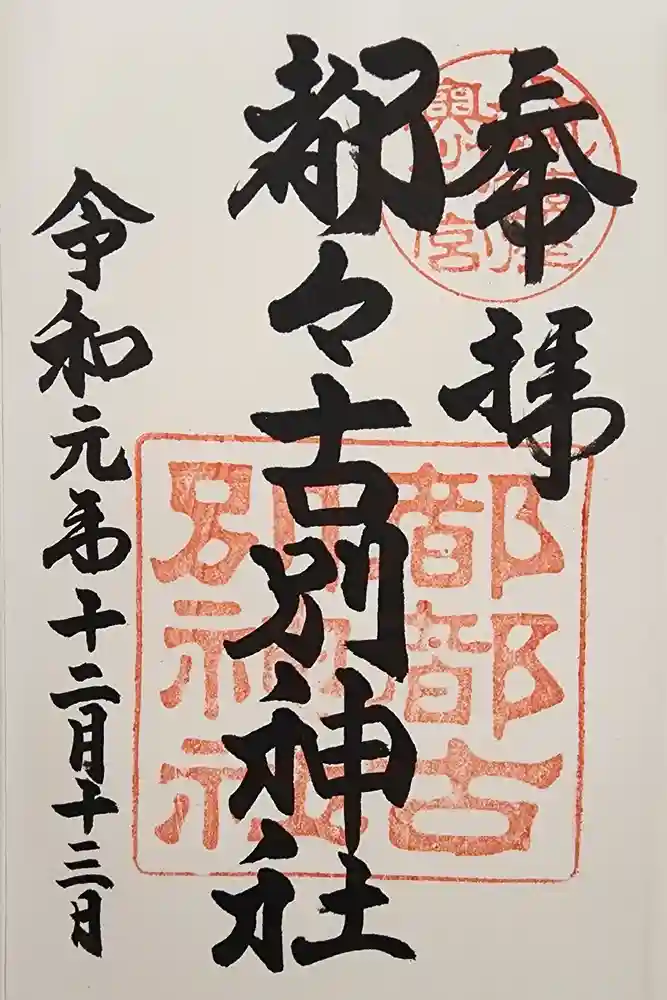 奉拝
都々古別神社
令和元年十二月十三日
都都古
別神社